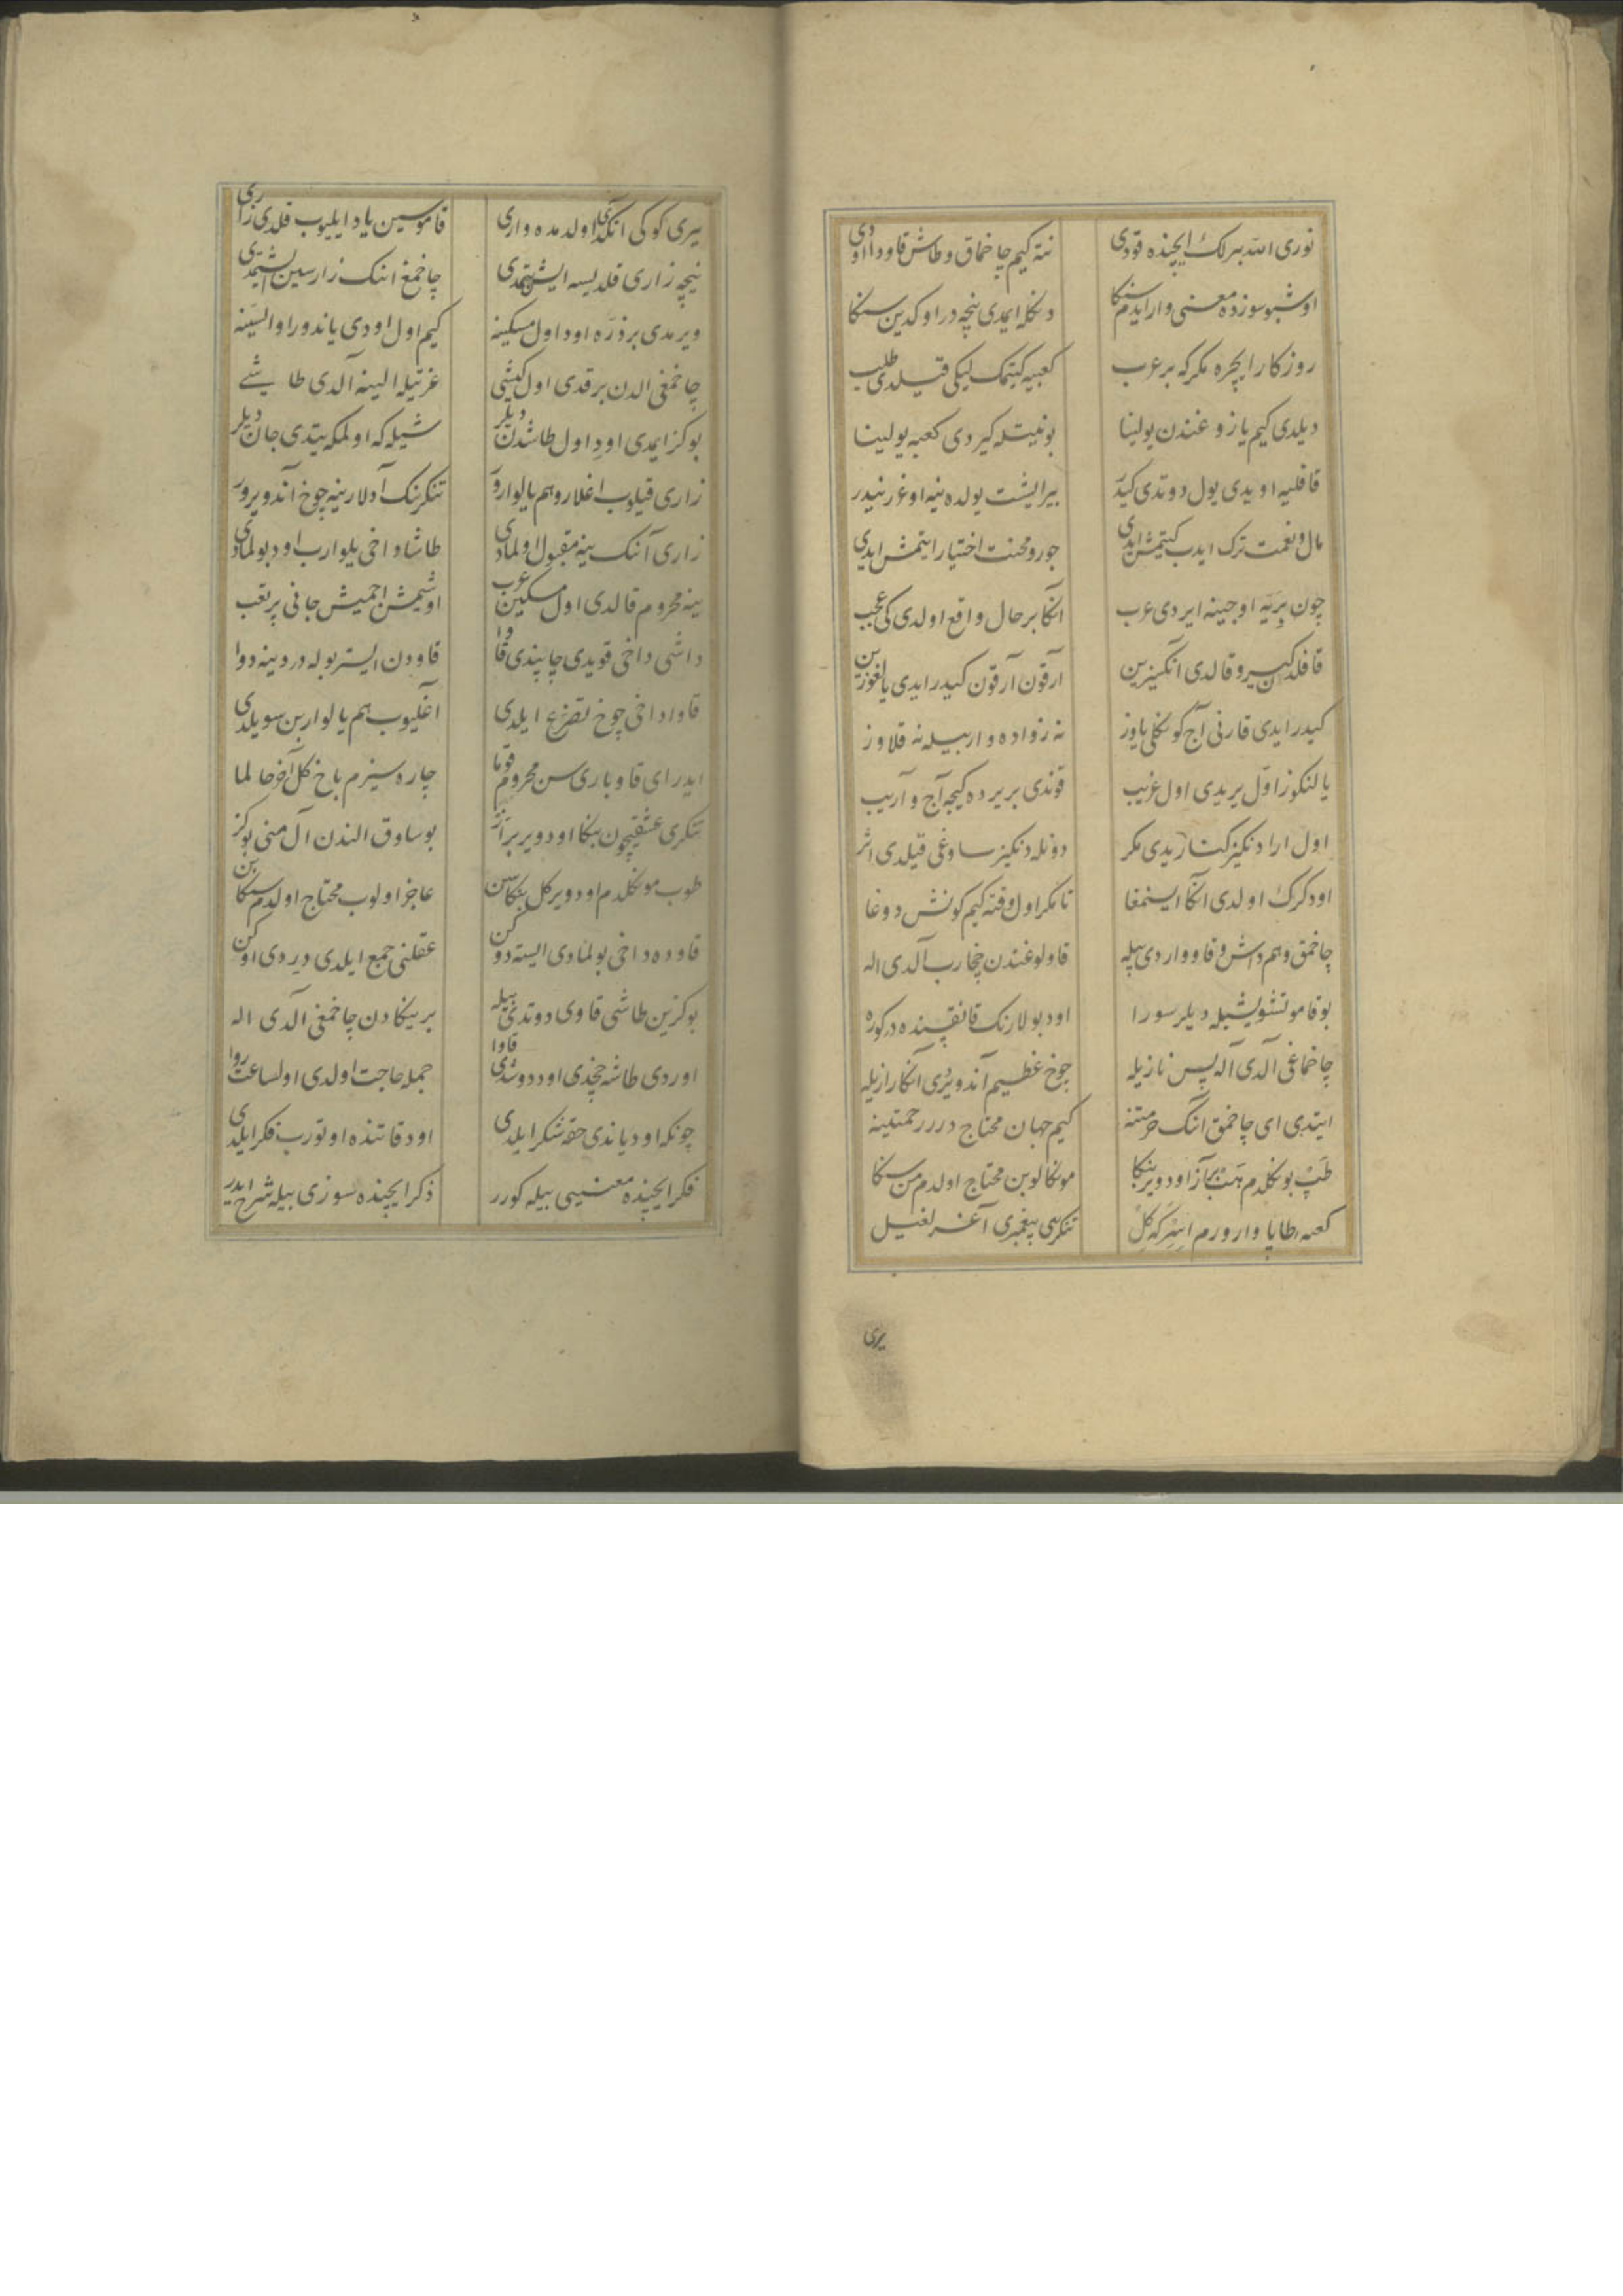 نوری الله بیرلک ایچنده قودی نته کیم چاخماق و طاش قاودا اودی
اوشبو سوزده معنی وار ایدم سنکا دنکله ایمدی نیچه در اوکدین سنکا
روزکار ایچره مکر که بر عرب کعبیه کیتمک لیکی قیلدی طلب
دیلدی کیم یازوغندن یولینا بو نیتله کیردی کعبه یولینا
قافلیه اویدی یول دوتدی کیدر بیر ایشت یولده نیه اوغرنیدر
مال و نعمت ترک ایدب کیتمش ایدی جور و محنت اختیار ایتمش ایدی
چون بریه اوجینه ایردی عرب انکا بر حال واقع اولدی کی عجب
قافله کیرو قالدی انکسزین آرقون آرقون کیدر ایدی یالغوزین
کیدر ایدی قارنی آج کونکلی یاوز نه زواده وار بیله نه قلاوز
یالنکوز اول یریدی اول غریب قوندی بر یرده کیجه آج و آریب
اول ارا دنکیز کناریدی مکر دونله دنکیز ساوغی قیلدی اثر
اود کرک اولدی انکا ایسنمغا تا مکر اول وقته کیم کونش دوغا
چاخمق و هم داش و قاو واردی بیله قاولوغندن چخارب آلدی اله
بو قامو تشویشیله دیلر سورا اود بولارنک قانقسینده در کوره
چاخماغی آلدی آله پس نازیله چوخ عظیم آند ویردی انکا رازیله
ایتدی ای چاخمق انک حرمتنه کیم جهان محتاج درر رحمتینه
طپ بونکلدم بر آز اود ویر بنکا مونکالوبن محتاج اولدم من سنکا
کعبه طاپا وارورم اسرکه کل تنکری پیغمبری آغرلغیل
یری
یری کوکی انکدی اولدمده واری قاموسین یاد ایلیوب قلدی زاری
نیچه زاری قلدیسه ایشتمدی چاخمغ انک زارسین ایشتمدی
ویرمدی بر ذره اود اول مسکینه کیم اول اودی یاندورا و السینه
چاخمغی الدن برقدی اول کیشی عزتیله الینه آلدی طاشی
بو کز ایمدی اود اول طاشدن دیلر شیله که اولمکه یتدی جان دیلر
زاری قیلوب اغلار و هم یالوارور تنکرنک آدلارینه چوخ آند ویرور
زاری آنک ینه مقبول اولمادی طاشا داخی یلوارب اود بولمادی
ینه محروم قالدی اول مسکین عرب اوشمش اجمیش جانی پر تعب
داشی داخی قویدی چاپندی قاوا قاودن ایستر بوله دردینه دوا
قاوا داخی چوخ تضرع ایلدی آغلیوب هم یالواربن سویلدی
ایدر ای قاو باری سن محروم قوما چاره سیزم باخ کل آخر حالما
تنکری عشقیچون بنکا اود ویر بر آز بو ساوق الندن آل منی بو کز
طوب مونکلدم اود ویر کل بنکا سن عاجز اولوب محتاج اولدم سنکا بن
قاوده داخی بولمادی ایسته دوکن عقلنی جمع ایلدی دردی اوکن
بو کزین طاشی قاوی دوتدی بیله بر ینکادن چاخمغی آلدی اله
اوردی طاشه چخدی اود دوشدی قاوا جمله حاجت اولدی اول ساعت روا
چونکه اود یاندی حقه شکر ایلدی اود قاتنده اوتورب فکر ایلدی
فکر ایچنده معنسیی بیله کورر ذکر ایچنده سوزی بیله شرح ایدر